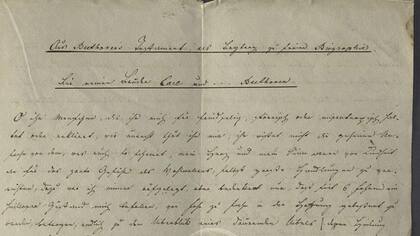 Aus Beethovens Testament als Beytrag zu seiner Biographie
Für meine Brüder Carl und ... Beethoven
O ihr Menschen die ihr mich für feindselig, störrisch oder misantropisch hal-
tet oder erklärt, wie unrecht thut ihr mir, ihr wisset nicht die geheime Ur-
sache von dem, was euch so scheinet, mein Herz und mein Sinn waren von Kindheit
an für das zarte Gefühl des Wohlwollens, selbst große Handlungen zu ver-
richten, dazu war ich immer aufgelegt, aber bedenket nur, daß seit 6 Jahren ein
heilloser Zustand mich befallen, von Jahr zu Jahr in der Hoffnung gebessert zu
werden, betrogen, endlich zu dem Überblick eines dauernden Übels (dessen Heilung